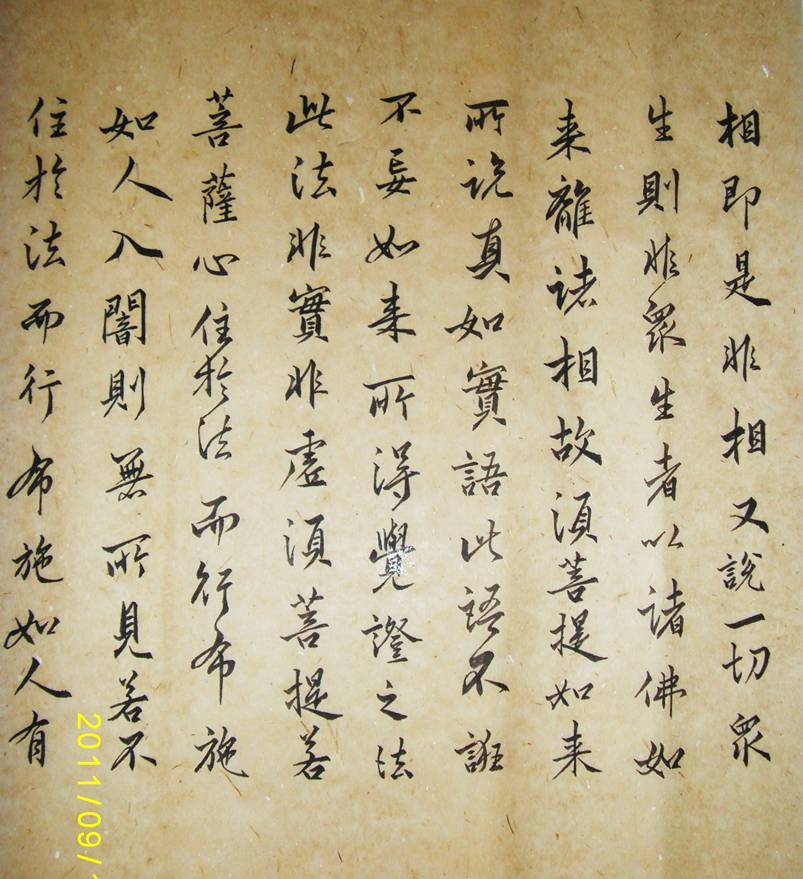 相即是非相又説一切眾
生則非眾生者以諸佛如
来離諸相故須菩提如来
所説真如實語此語不誑
不妄如来所得覺證之法
此法非實非虛須菩提若
菩薩心住於法而行布施
如人入闇則無所見若不
住於法而行布施如人有
2011/09/